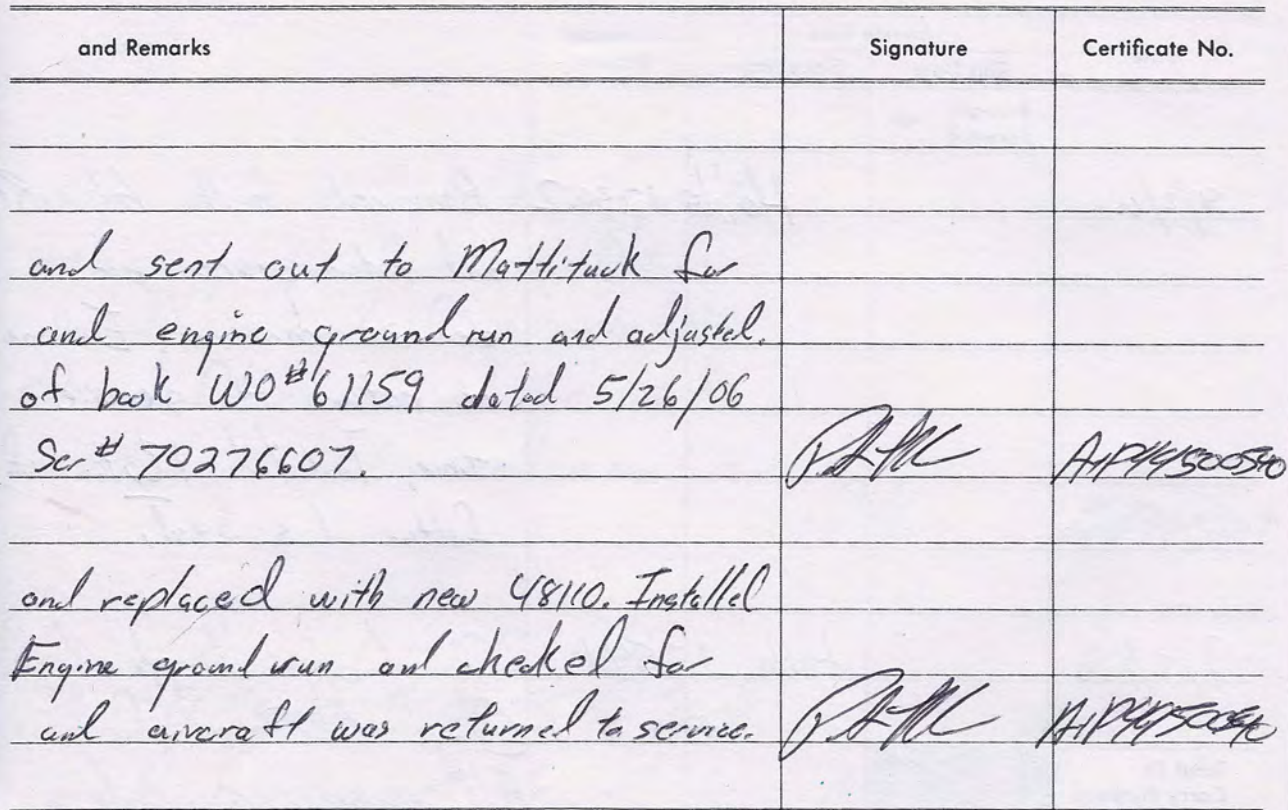 and Remarks Signature Certificate No.
and sent out to Mattituck for
and engine ground run and adjusted.
of book WO# 61159 dated 5/26/06
Ser# 70276607.
and replaced with new 48110. Installed
Engine ground run and checked for
and aircraft was returned to service.